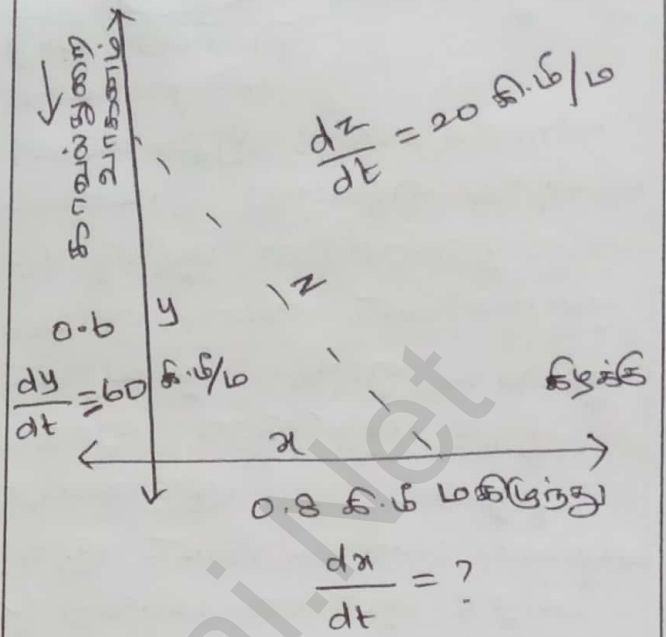 காவல்துறை
வாகனம்
dz/dt = 20 கி.மீ/ம
z
y
0.6
dy/dt = 60 கி.மீ/ம
கிழக்கு
x
0.8 கி.மீ மகிழுந்து
dx/dt = ?